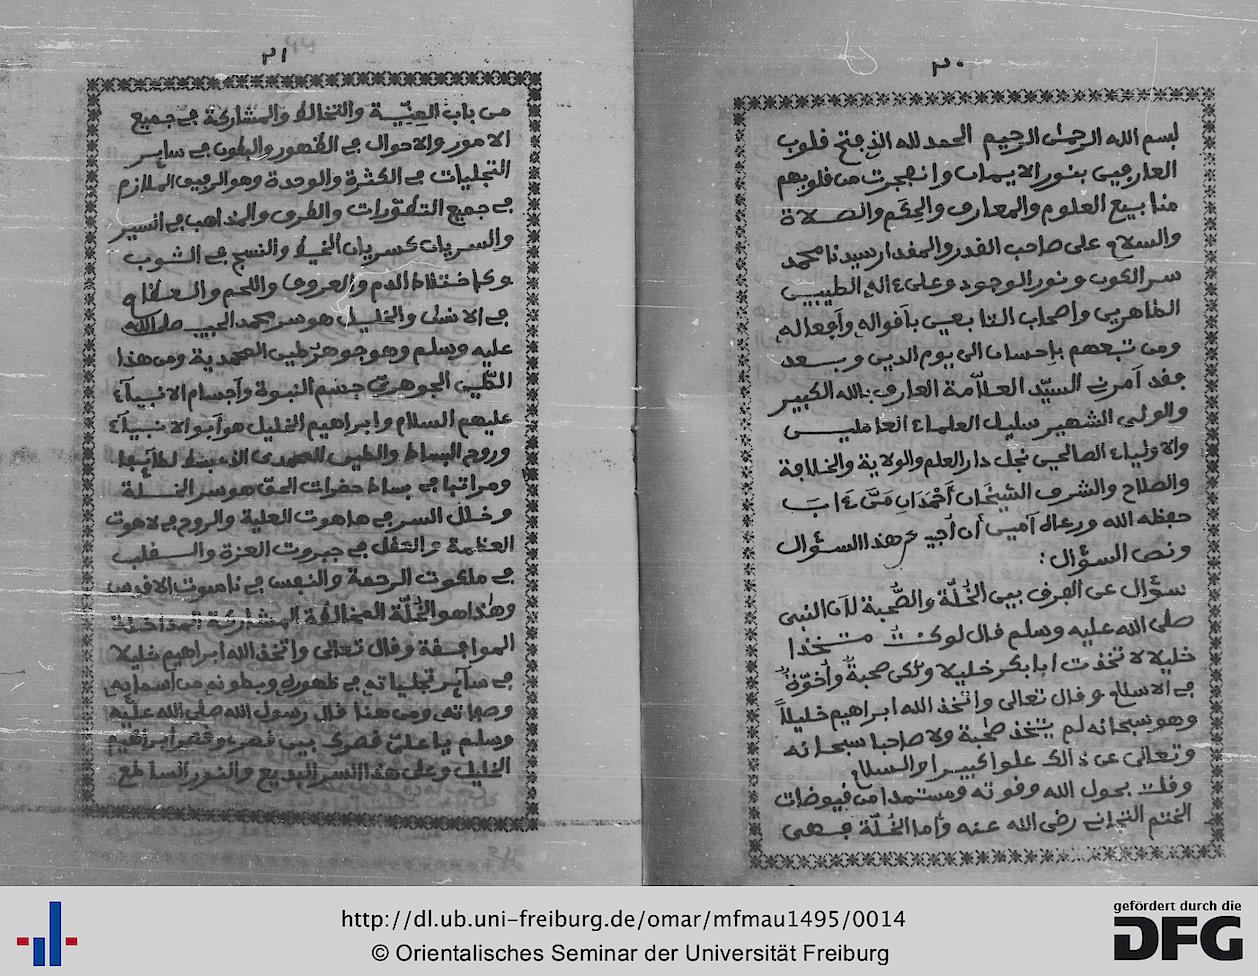 ٢٠
بسم الله الرحمن الرحيم الحمد لله الذي فتح قلوب
العارفين بنور الايمان وانفجرت من قلوبهم
منابيع العلوم والمعارف والحكم والصلاة
والسلام على صاحب القدر والمقدار سيدنا محمد
سر الكون ونور الوجود وعلى ءاله الطيبين
الطاهرين واصحاب التابعين بأقواله وأفعاله
ومن تبعهم بإحسان الى يوم الدين وبعد
فقد أمرني السيّد العلاّمة العارف بالله الكبير
والولي الشهير سليل العلماء العاملين
والاولياء الصالحين نجل دار العلم والولاية والخلافة
والصلاح والشرف الشيخان أحمدان
حفظه الله ورعاه آمين أن أجيب عن هذا السؤال
ونص السؤال:
سؤال عن الفرق بين الخُلّة والصُّحبة لأن النبي
صلى الله عليه وسلم قال لو كنت متخذا
خليلا لاتخذت ابا بكر خليلا ولكن صحبة وأخوّة
في الاسلام وقال تعالى واتخذ الله ابراهيم خليلاً
وهو سبحانه لم يتخذ صحبة ولا صاحبا سبحانه
وتعالى عن ذالك علوا كبيرا والسلام
وقلت بحول الله وقوته ومستمدا من فيوضات
الختم التجاني رضى الله عنه وأما الخُلّة فهى
٢١
من باب والتخالل والمشاركة في جميع
الامور والاحوال في الظهور والبطون في ساير
التجليات في الكثرة والوحدة وهو الرفيق الملازم
في جميع التطوّرات والطرق والمذاهب في السير
والسريان كسريان الخيط والنسج في الثوب
وكاختلاط الدم والعروق واللحم والعظام
في الانسان والخليل هو سر محمد الحبيب صلى الله
عليه وسلم وهو جوهر طين المحمدية ومن هذا
الطين الجوهري جسم النبوة وأجسام الانبياء
عليهم السلام وابراهيم الخليل هو أبو الانبياء
وروح البساط والطين المحمدي
ومراتبا في بساط حضرات الحق هو سر الخلة
وخلل السر في هاهوت العلية والروح في لاهوت
العظمة والعقل في جبروت العزة والقلب
في ملكوت الرحمة والنفس في ناسوت الاقدس
وهذا هو الخُلّة المخاللة المشاركة المداخلة
الموافقة وقال تعالى واتخذ الله ابراهيم خليلا
في ساير تجلياته في ظهوره وبطونه من أسمايه
وصفاته ومن هنا قال رسول الله صلى الله عليه
وسلم يا علي قصرك بين قصري وقصر ابراهيم
الخليل وعلى هذا السر البديع والنور الساطع
http://dl.ub.uni-freiburg.de/omar/mfmau1495/0014
© Orientalisches Seminar der Universität Freiburg
gefördert durch die
DFG